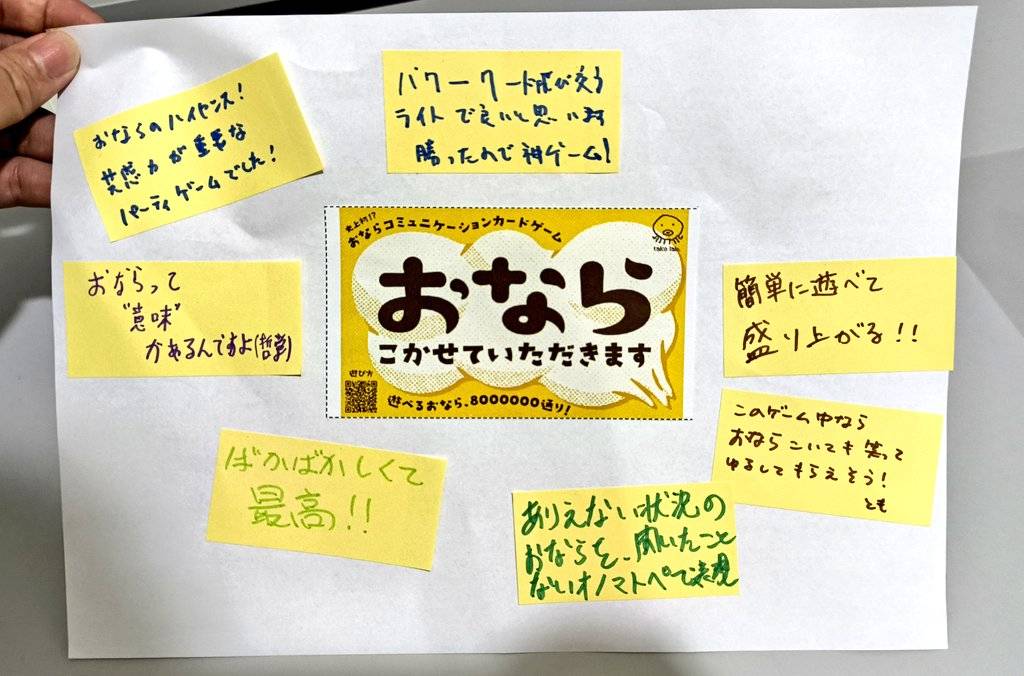 おならのハイセンス!
共感力が重要な
パーティゲームでした!
パワーワードが交う
ライトで良いと思います
勝ったので神ゲーム!
おならって
"意味"
があるんですよ(哲学)
史上初!?
おならコミュニケーションカードゲーム
tako lab
おなら
こかせていただきます
遊び方
遊べるおなら、8000000通り!
簡単に遊べて
盛り上がる!!
このゲーム中なら
おならこいても笑って
ゆるしてもらえそう!
とも
ばかばかしくて
最高!!
ありえない状況の
おならを、聞いたこと
ないオノマトペで表現